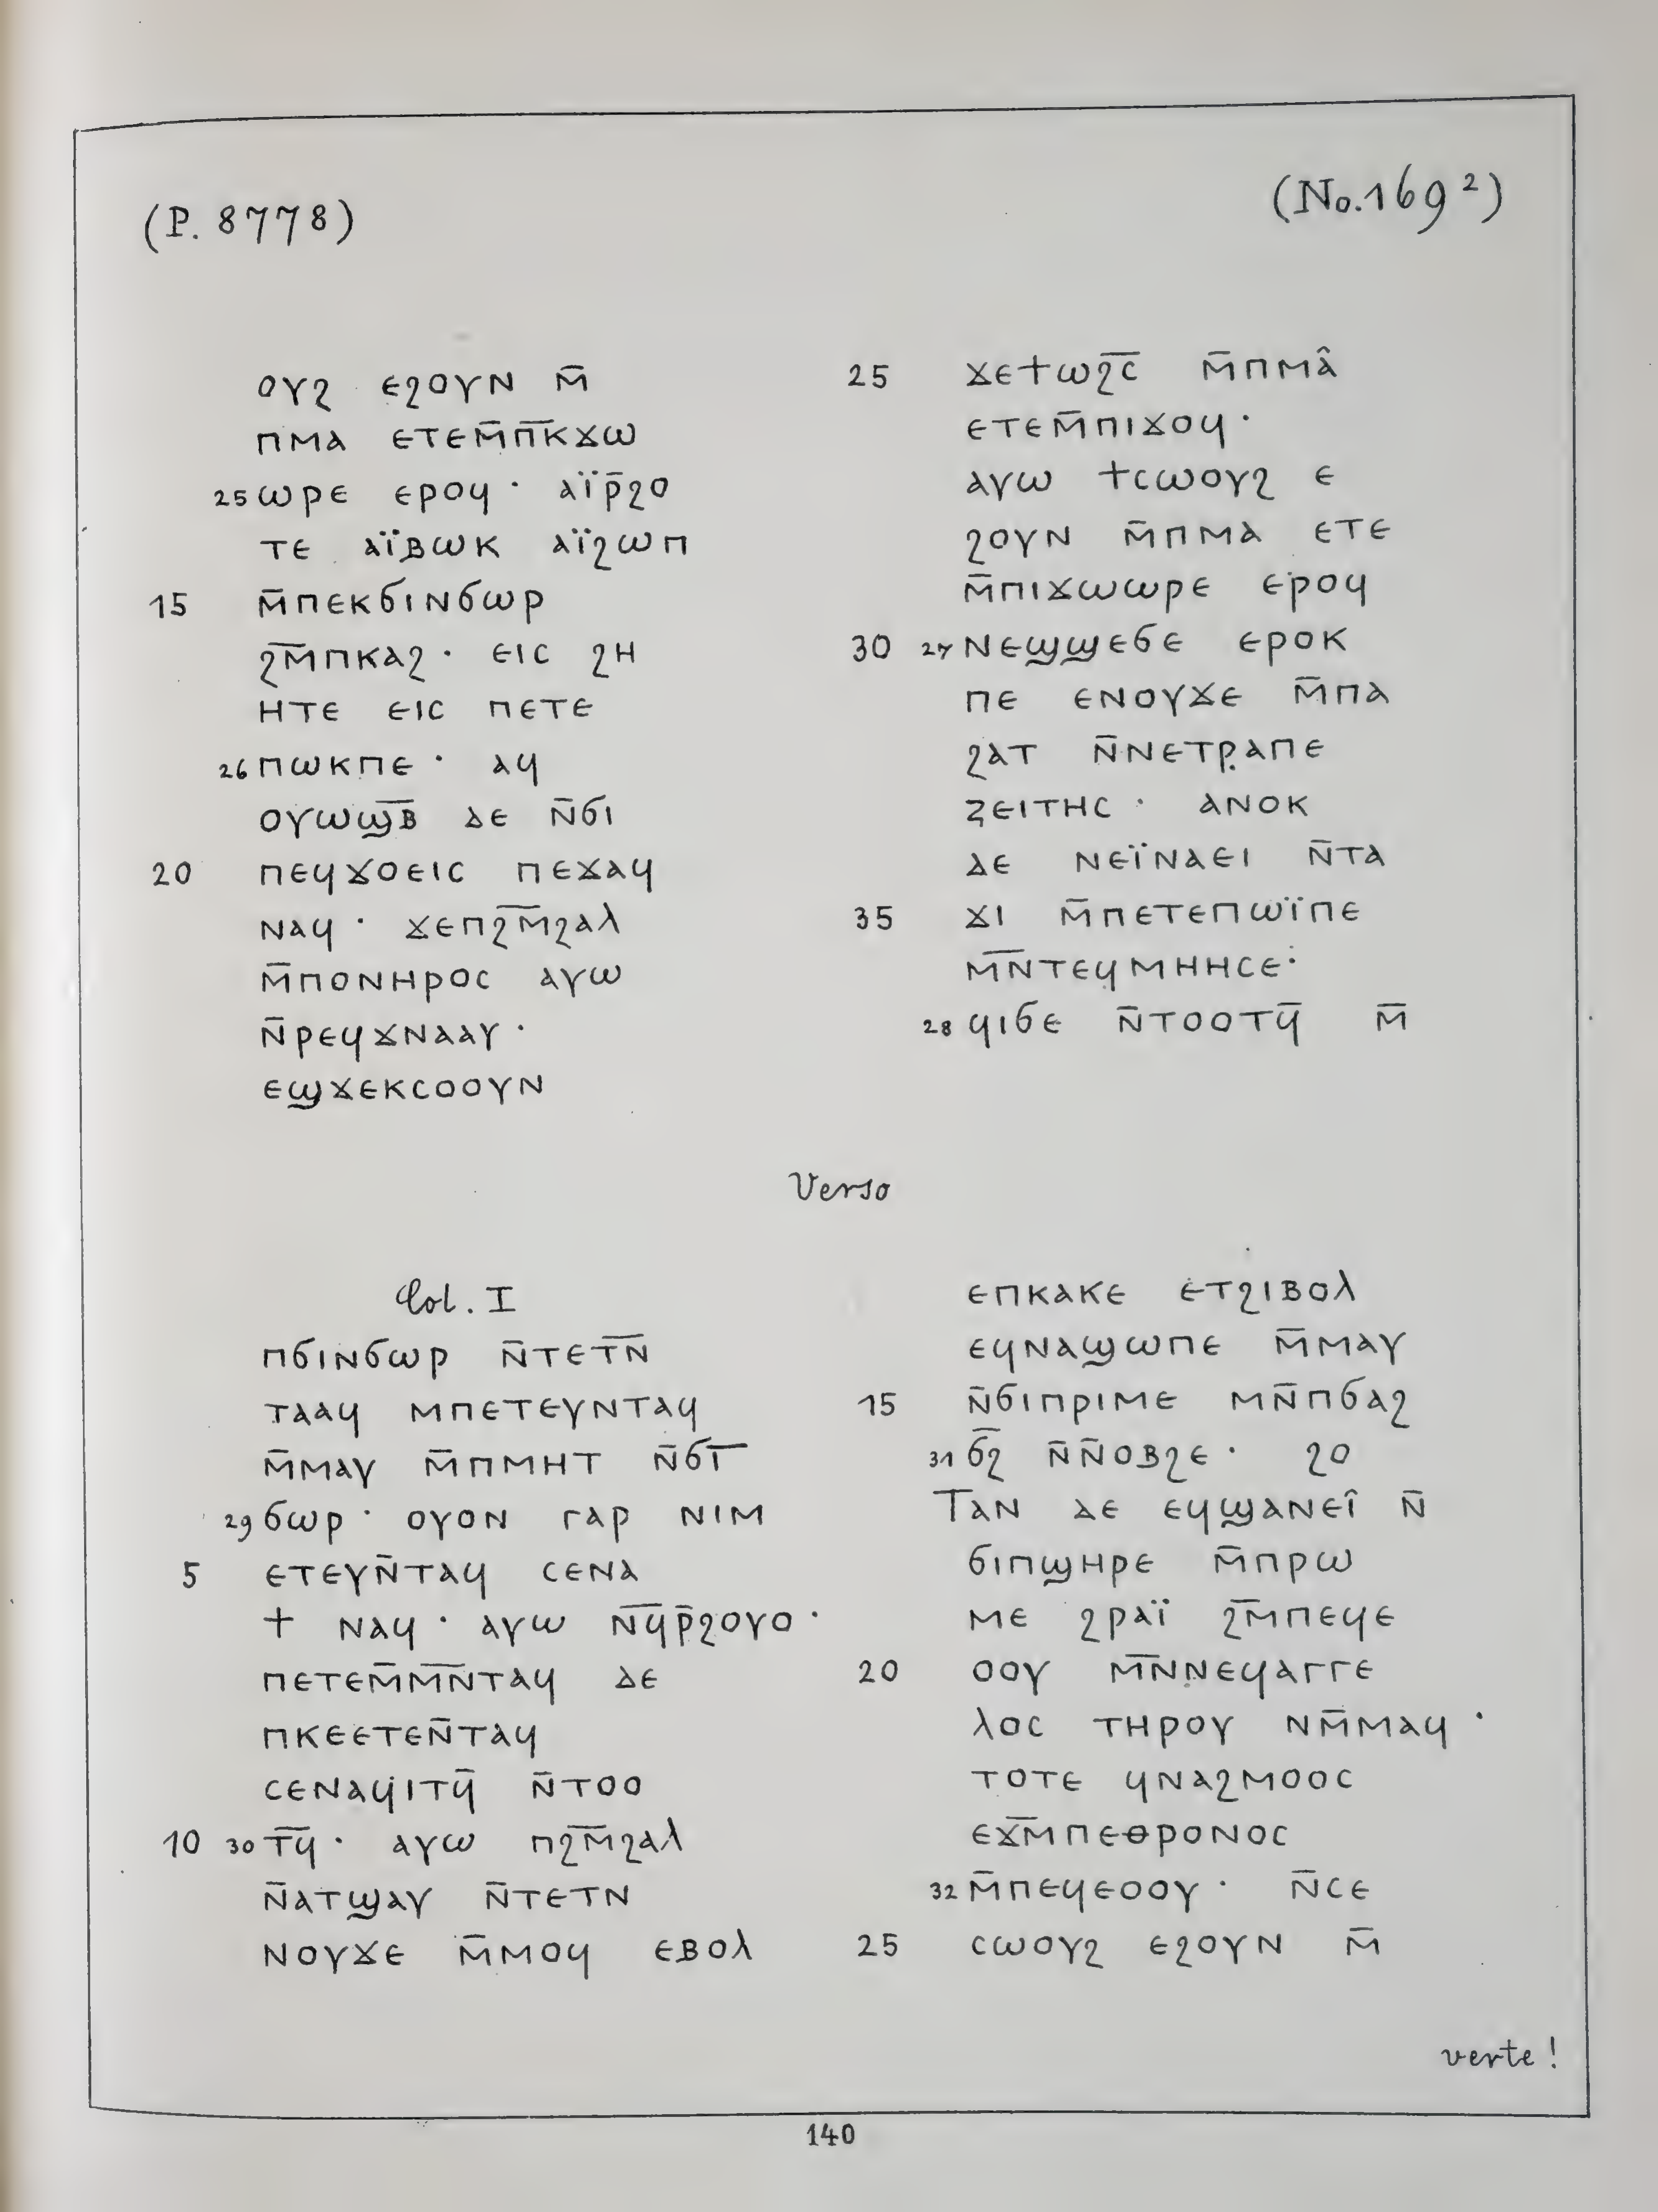 (P. 8778)
(No. 169 ²)
ⲟⲩϩ ⲉϩⲟⲩⲛ ⲙ̄
ⲡⲙⲁ ⲉⲧⲉⲙ̄ⲡ̄ⲕ̄ϫⲱ
25 ⲱⲣⲉ ⲉⲣⲟϥ · ⲁⲓ̈ⲣ̄ϩⲟ
ⲧⲉ ⲁⲓ̈ⲃⲱⲕ ⲁⲓ̈ϩⲱⲡ
15 ⲙ̄ⲡⲉⲕϭⲓⲛϭⲱⲣ
ϩ̄ⲙ̄ⲡⲕⲁϩ · ⲉⲓⲥ ϩⲏ
ⲏⲧⲉ ⲉⲓⲥ ⲡⲉⲧⲉ
26 ⲡⲱⲕⲡⲉ · ⲁϥ
ⲟⲩⲱϣ̄ⲃ̄ ⲇⲉ ⲛ̄ϭⲓ
20 ⲡⲉϥϫⲟⲉⲓⲥ ⲡⲉϫⲁϥ
ⲛⲁϥ · ϫⲉⲡϩ̄ⲙ̄ϩⲁⲗ
ⲙ̄ⲡⲟⲛⲏⲣⲟⲥ ⲁⲩⲱ
ⲛ̄ⲣⲉϥϫⲛⲁⲁⲩ ·
ⲉϣϫⲉⲕⲥⲟⲟⲩⲛ
25 ϫⲉϯⲱϩ̄ⲥ̄ ⲙ̄ⲡⲙⲁ̂
ⲉⲧⲉⲙ̄ⲡⲓϫⲟϥ ·
ⲁⲩⲱ ϯⲥⲱⲟⲩϩ ⲉ
ϩⲟⲩⲛ ⲙ̄ⲡⲙⲁ ⲉⲧⲉ
ⲙ̄ⲡⲓϫⲱⲱⲣⲉ ⲉⲣⲟϥ
30 27 ⲛⲉϣϣⲉϭⲉ ⲉⲣⲟⲕ
ⲡⲉ ⲉⲛⲟⲩϫⲉ ⲙ̄ⲡⲁ
ϩⲁⲧ ⲛ̄ⲛⲉⲧⲣⲁⲡⲉ
ⲍⲉⲓⲧⲏⲥ · ⲁⲛⲟⲕ
ⲇⲉ ⲛⲉⲓ̈ⲛⲁⲉⲓ ⲛ̄ⲧⲁ
35 ϫⲓ ⲙ̄ⲡⲉⲧⲉⲡⲱⲓ̈ⲡⲉ
ⲙ̄ⲛ̄ⲧⲉϥⲙⲏⲏⲥⲉ ·
28 ϥⲓϭⲉ ⲛ̄ⲧⲟⲟⲧϥ̄ ⲙ̄
Verso
Col. I
ⲡϭⲓⲛϭⲱⲣ ⲛ̄ⲧⲉⲧ̄ⲛ̄
ⲧⲁⲁϥ ⲙⲡⲉⲧⲉⲩⲛⲧⲁϥ
ⲙ̄ⲙⲁⲩ ⲙ̄ⲡⲙⲏⲧ ⲛ̄ϭⲓ̅
29 ϭⲱⲣ · ⲟⲩⲟⲛ ⲅⲁⲣ ⲛⲓⲙ
5 ⲉⲧⲉⲩⲛ̄ⲧⲁϥ ⲥⲉⲛⲁ
ϯ ⲛⲁϥ · ⲁⲩⲱ ⲛ̄ϥ̄ⲣ̄ϩⲟⲩⲟ ·
ⲡⲉⲧⲉⲙ̄ⲙ̄ⲛ̄ⲧⲁϥ ⲇⲉ
ⲡⲕⲉⲉⲧⲉⲛ̄ⲧⲁϥ
ⲥⲉⲛⲁϥⲓⲧϥ̄ ⲛ̄ⲧⲟⲟ
10 30 ⲧ̄ϥ̄ · ⲁⲩⲱ ⲡϩ̄ⲙ̄ϩⲁⲗ
ⲛ̄ⲁⲧϣⲁⲩ ⲛ̄ⲧⲉⲧⲛ
ⲛⲟⲩϫⲉ ⲙ̄ⲙⲟϥ ⲉⲃⲟⲗ
ⲉⲡⲕⲁⲕⲉ ⲉⲧϩⲓⲃⲟⲗ
ⲉϥⲛⲁϣⲱⲡⲉ ⲙ̄ⲙⲁⲩ
15 ⲛ̄ϭⲓⲡⲣⲓⲙⲉ ⲙⲛ̄ⲡϭⲁϩ
31 ϭ̄ϩ̄ ⲛ̄ⲛ̄ⲟⲃϩⲉ · ϩⲟ
ⲧⲁⲛ ⲇⲉ ⲉϥϣⲁⲛⲉⲓ̂ ⲛ̄
ϭⲓⲡϣⲏⲣⲉ ⲙ̄ⲡⲣⲱ
ⲙⲉ ϩⲣⲁⲓ̈ ϩ̄ⲙ̄ⲡⲉϥⲉ
20 ⲟⲟⲩ ⲙ̄ⲛ̄ⲛⲉϥⲁⲅⲅⲉ
ⲗⲟⲥ ⲧⲏⲣⲟⲩ ⲛⲙ̄ⲙⲁϥ ·
ⲧⲟⲧⲉ ϥⲛⲁϩⲙⲟⲟⲥ
ⲉϫ̄ⲙ̄ⲡⲉⲑⲣⲟⲛⲟⲥ
32 ⲙ̄ⲡⲉϥⲉⲟⲟⲩ · ⲛ̄ⲥⲉ
25 ⲥⲱⲟⲩϩ ⲉϩⲟⲩⲛ ⲙ̄
verte !
140